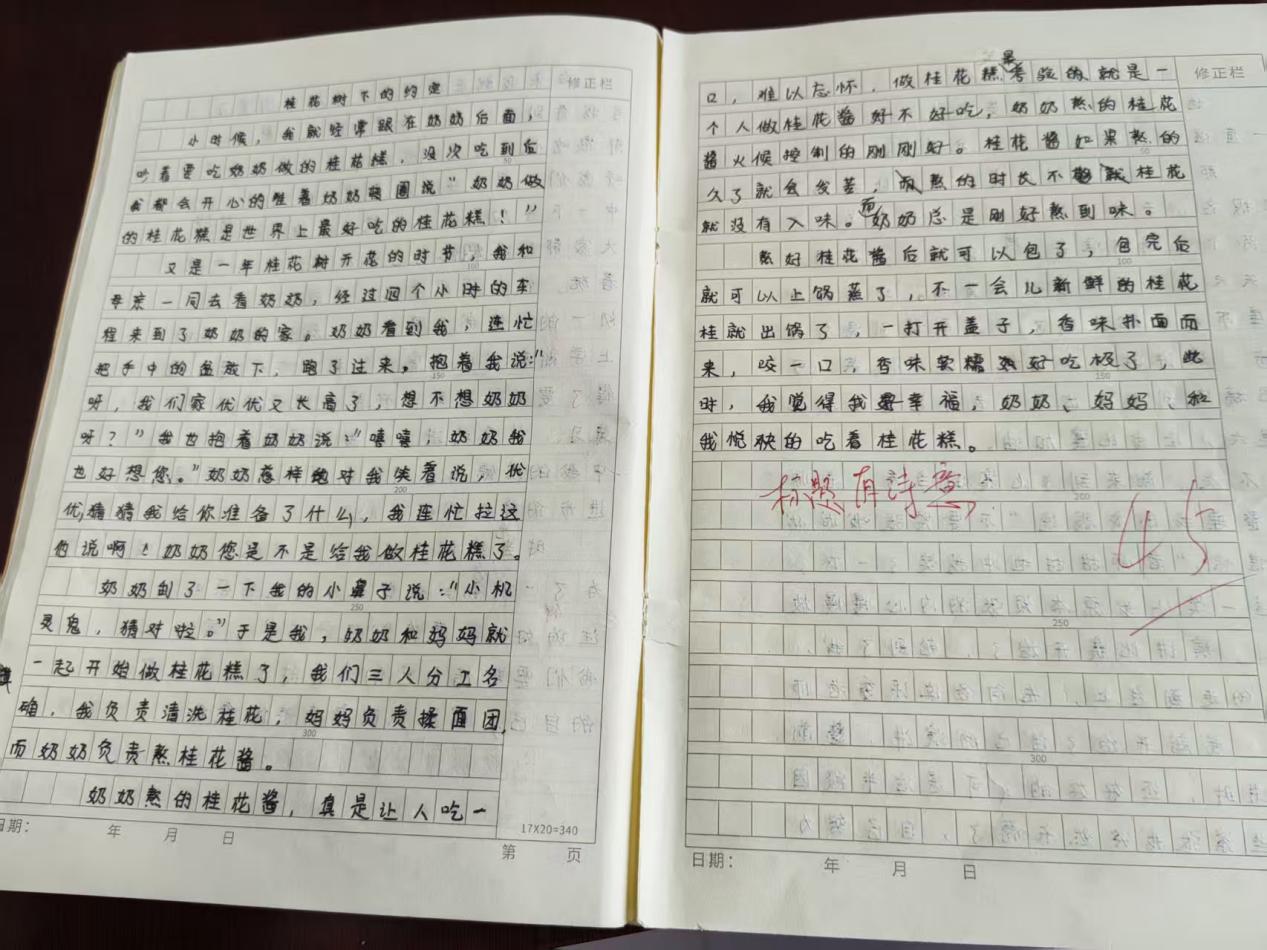 修正栏
桂花树下的约定
小时候，我就经常跟在奶奶后面，
吵着要吃奶奶做的桂花糕，没次吃到后
我都会开心的胜着奶奶转圈说"奶奶做
的桂花糕是世界上最好吃的桂花糕！"
又是一年桂花树开花的时节，我和
母亲一同去看奶奶，经过四个小时的车
程来到了奶奶的家。奶奶看到我，连忙
把手中的盆放下，跑了过来，抱着我说："
呀，我们家优优又长高了，想不想奶奶
呀？"我也抱着奶奶说："嘻嘻，奶奶我
也好想您。"奶奶慈祥地对我笑着说，优
优，猜猜我给你准备了什么，我连忙拉这
他说啊！奶奶您是不是给我做桂花糕了。
奶奶刮了一下我的小鼻子说："小机
灵鬼，猜对啦。"于是我，奶奶和妈妈就
一起开始做桂花糕了，我们三人分工名
确，我负责清洗桂花，妈妈负责揉面团，
而奶奶负责熬桂花酱。
奶奶熬的桂花酱，真是让人吃一
17X20=340
日期： 年 月 日
第 页
修正栏
口，难以忘怀，做桂花糕最考验的就是一
个人做桂花酱好不好吃，奶奶熬的桂花
酱火候控制的刚刚好。桂花酱如果熬的
久了就会发苦，熬的时长不桂花
就没有入味。而奶奶总是刚好熬到味。
熬好桂花酱后就可以包了，包完后
就可以上锅蒸了，不一会儿新鲜的桂花
桂就出锅了，一打开盖子，香味扑面而
来，咬一口，香味软糯好吃极了，此
时，我觉得我要幸福，奶奶、妈妈、和
我悦耿的吃着桂花糕。
标题有诗意，
45
日期： 年 月 日